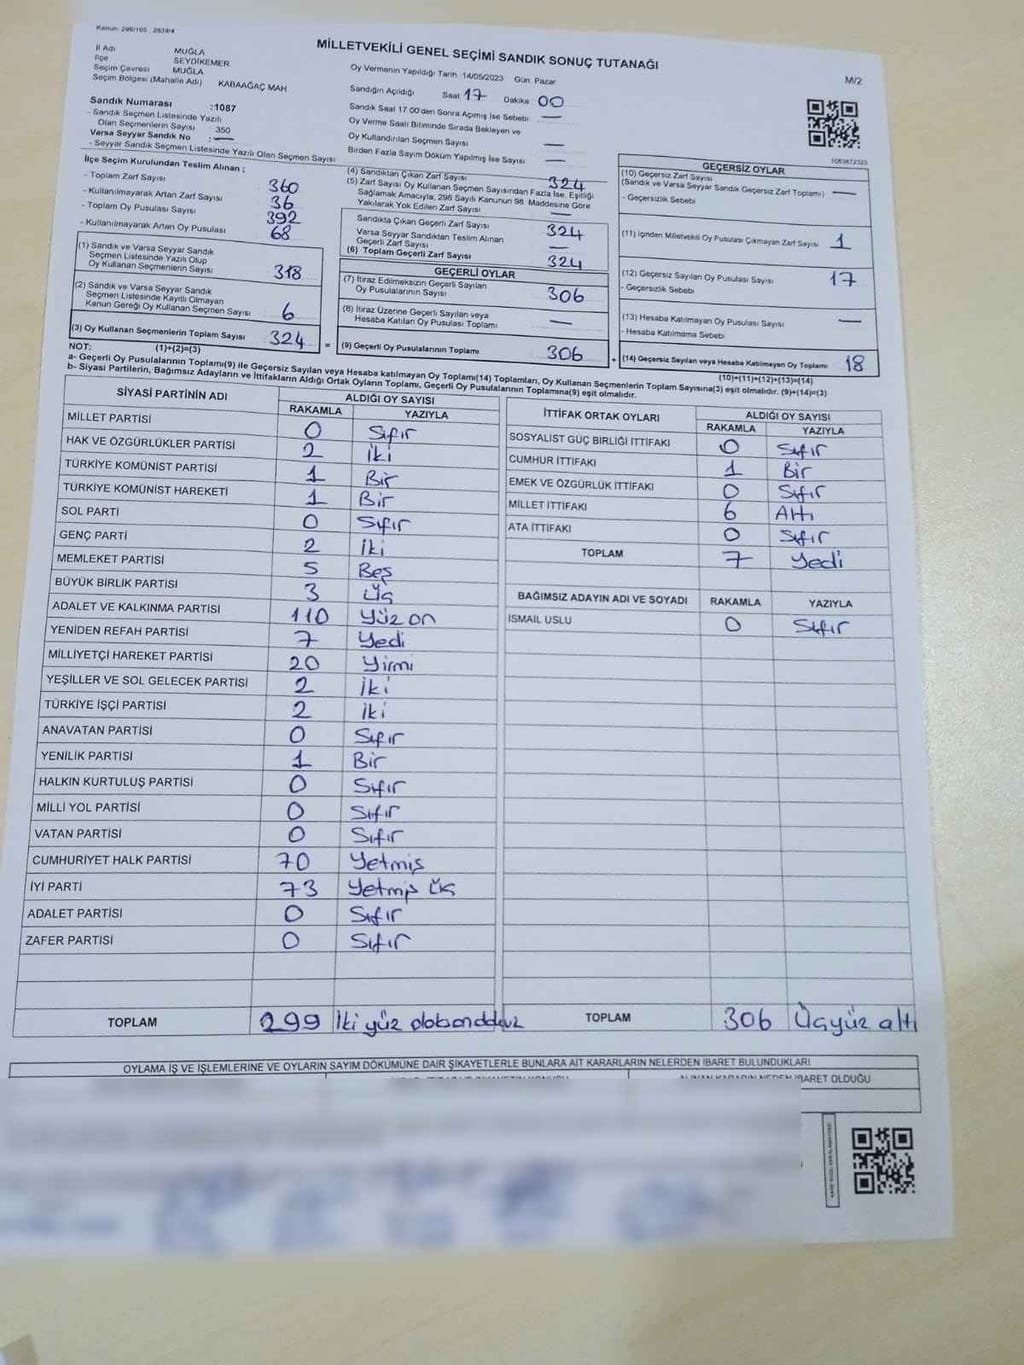 Kanun: 298/105 2839/4
MİLLETVEKİLİ GENEL SEÇİMİ SANDIK SONUÇ TUTANAĞI
M/2
İl Adı MUĞLA
İlçe SEYDİKEMER
Seçim Çevresi MUĞLA
Seçim Bölgesi (Mahalle Adı) KABAAĞAÇ MAH
Sandık Numarası :1087
- Sandık Seçmen Listesinde Yazılı
Olan Seçmenlerin Sayısı : 350
Varsa Seyyar Sandık No : —
- Seyyar Sandık Seçmen Listesinde Yazılı Olan Seçmen Sayısı
Oy Vermenin Yapıldığı Tarih 14/05/2023 Gün Pazar
Sandığın Açıldığı Saat 17 Dakika 00
Sandık Saat 17 00'den Sonra Açımış İse Sebebi —
Oy Verme Saati Bitiminde Sırada Bekleyen ve
Oy Kullandırılan Seçmen Sayısı —
Birden Fazla Sayım Döküm Yapılmış İse Sayısı —
İlçe Seçim Kurulundan Teslim Alınan ;
- Toplam Zarf Sayısı 360
- Kullanılmayarak Artan Zarf Sayısı 36
- Toplam Oy Pusulası Sayısı 392
- Kullanılmayarak Artan Oy Pusulası 68
(1) Sandık ve Varsa Seyyar Sandık
Seçmen Listesinde Yazılı Olup
Oy Kullanan Seçmenlerin Sayısı 318
(2) Sandık ve Varsa Seyyar Sandık
Seçmen Listesinde Kayıtlı Olmayan
Kanun Gereği Oy Kullanan Seçmen Sayısı 6
(3) Oy Kullanan Seçmenlerin Toplam Sayısı 324
(4) Sandıktan Çıkan Zarf Sayısı 324
(5) Zarf Sayısı Oy Kullanan Seçmen Sayısından Fazla İse, Eşitliği
Sağlamak Amacıyla; 298 Sayılı Kanunun 98. Maddesine Göre
Yakılarak Yok Edilen Zarf Sayısı —
Sandıkta Çıkan Geçerli Zarf Sayısı 324
Varsa Seyyar Sandıktan Teslim Alınan
Geçerli Zarf Sayısı —
(6) Toplam Geçerli Zarf Sayısı 324
GEÇERLİ OYLAR
(7) İtiraz Edilmeksizin Geçerli Sayılan
Oy Pusulalarının Sayısı 306
(8) İtiraz Üzerine Geçerli Sayılan veya
Hesaba Katılan Oy Pusulası Toplamı —
= (9) Geçerli Oy Pusulalarının Toplamı 306
GEÇERSİZ OYLAR
(10) Geçersiz Zarf Sayısı
(Sandık ve Varsa Seyyar Sandık Geçersiz Zarf Toplamı) —
- Geçersizlik Sebebi
(11) İçinden Milletvekili Oy Pusulası Çıkmayan Zarf Sayısı 1
(12) Geçersiz Sayılan Oy Pusulası Sayısı 17
- Geçersizlik Sebebi
(13) Hesaba Katılmayan Oy Pusulası Sayısı —
- Hesaba Katılmama Sebebi
+ (14) Geçersiz Sayılan veya Hesaba Katılmayan Oy Toplamı 18
NOT: (1)+(2)=(3)
(10)+(11)+(12)+(13)=(14)
a- Geçerli Oy Pusulalarının Toplamı(9) ile Geçersiz Sayılan veya Hesaba Katılmayan Oy Toplamı(14) Toplamları, Oy Kullanan Seçmenlerin Toplam Sayısına(3) eşit olmalıdır. (9)+(14)=(3)
b- Siyasi Partilerin, Bağımsız Adayların ve İttifakların Aldığı Ortak Oyların Toplamı, Geçerli Oy Pusulalarının Toplamına(9) eşit olmalıdır.
SİYASİ PARTİNİN ADI ALDIĞI OY SAYISI
RAKAMLA YAZIYLA
MİLLET PARTİSİ 0 Sıfır
HAK VE ÖZGÜRLÜKLER PARTİSİ 2 İki
TÜRKİYE KOMÜNİST PARTİSİ 1 Bir
TÜRKİYE KOMÜNİST HAREKETİ 1 Bir
SOL PARTİ 0 Sıfır
GENÇ PARTİ 2 İki
MEMLEKET PARTİSİ 5 Beş
BÜYÜK BİRLİK PARTİSİ 3 Üç
ADALET VE KALKINMA PARTİSİ 110 Yüz on
YENİDEN REFAH PARTİSİ 7 Yedi
MİLLİYETÇİ HAREKET PARTİSİ 20 Yirmi
YEŞİLLER VE SOL GELECEK PARTİSİ 2 İki
TÜRKİYE İŞÇİ PARTİSİ 2 İki
ANAVATAN PARTİSİ 0 Sıfır
YENİLİK PARTİSİ 1 Bir
HALKIN KURTULUŞ PARTİSİ 0 Sıfır
MİLLİ YOL PARTİSİ 0 Sıfır
VATAN PARTİSİ 0 Sıfır
CUMHURİYET HALK PARTİSİ 70 Yetmiş
İYİ PARTİ 73 Yetmiş üç
ADALET PARTİSİ 0 Sıfır
ZAFER PARTİSİ 0 Sıfır
TOPLAM 299 İki yüz doksandokuz
İTTİFAK ORTAK OYLARI ALDIĞI OY SAYISI
RAKAMLA YAZIYLA
SOSYALİST GÜÇ BİRLİĞİ İTTİFAKI 0 Sıfır
CUMHUR İTTİFAKI 1 Bir
EMEK VE ÖZGÜRLÜK İTTİFAKI 0 Sıfır
MİLLET İTTİFAKI 6 Altı
ATA İTTİFAKI 0 Sıfır
TOPLAM 7 Yedi
BAĞIMSIZ ADAYIN ADI VE SOYADI RAKAMLA YAZIYLA
İSMAİL USLU 0 Sıfır
TOPLAM 306 Üçyüz altı
OYLAMA İŞ VE İŞLEMLERİNE VE OYLARIN SAYIM DÖKÜMÜNE DAİR ŞİKAYETLERLE BUNLARA AİT KARARLARIN NELERDEN İBARET BULUNDUKLARI
ALINAN KARARIN NEDEN İBARET OLDUĞU